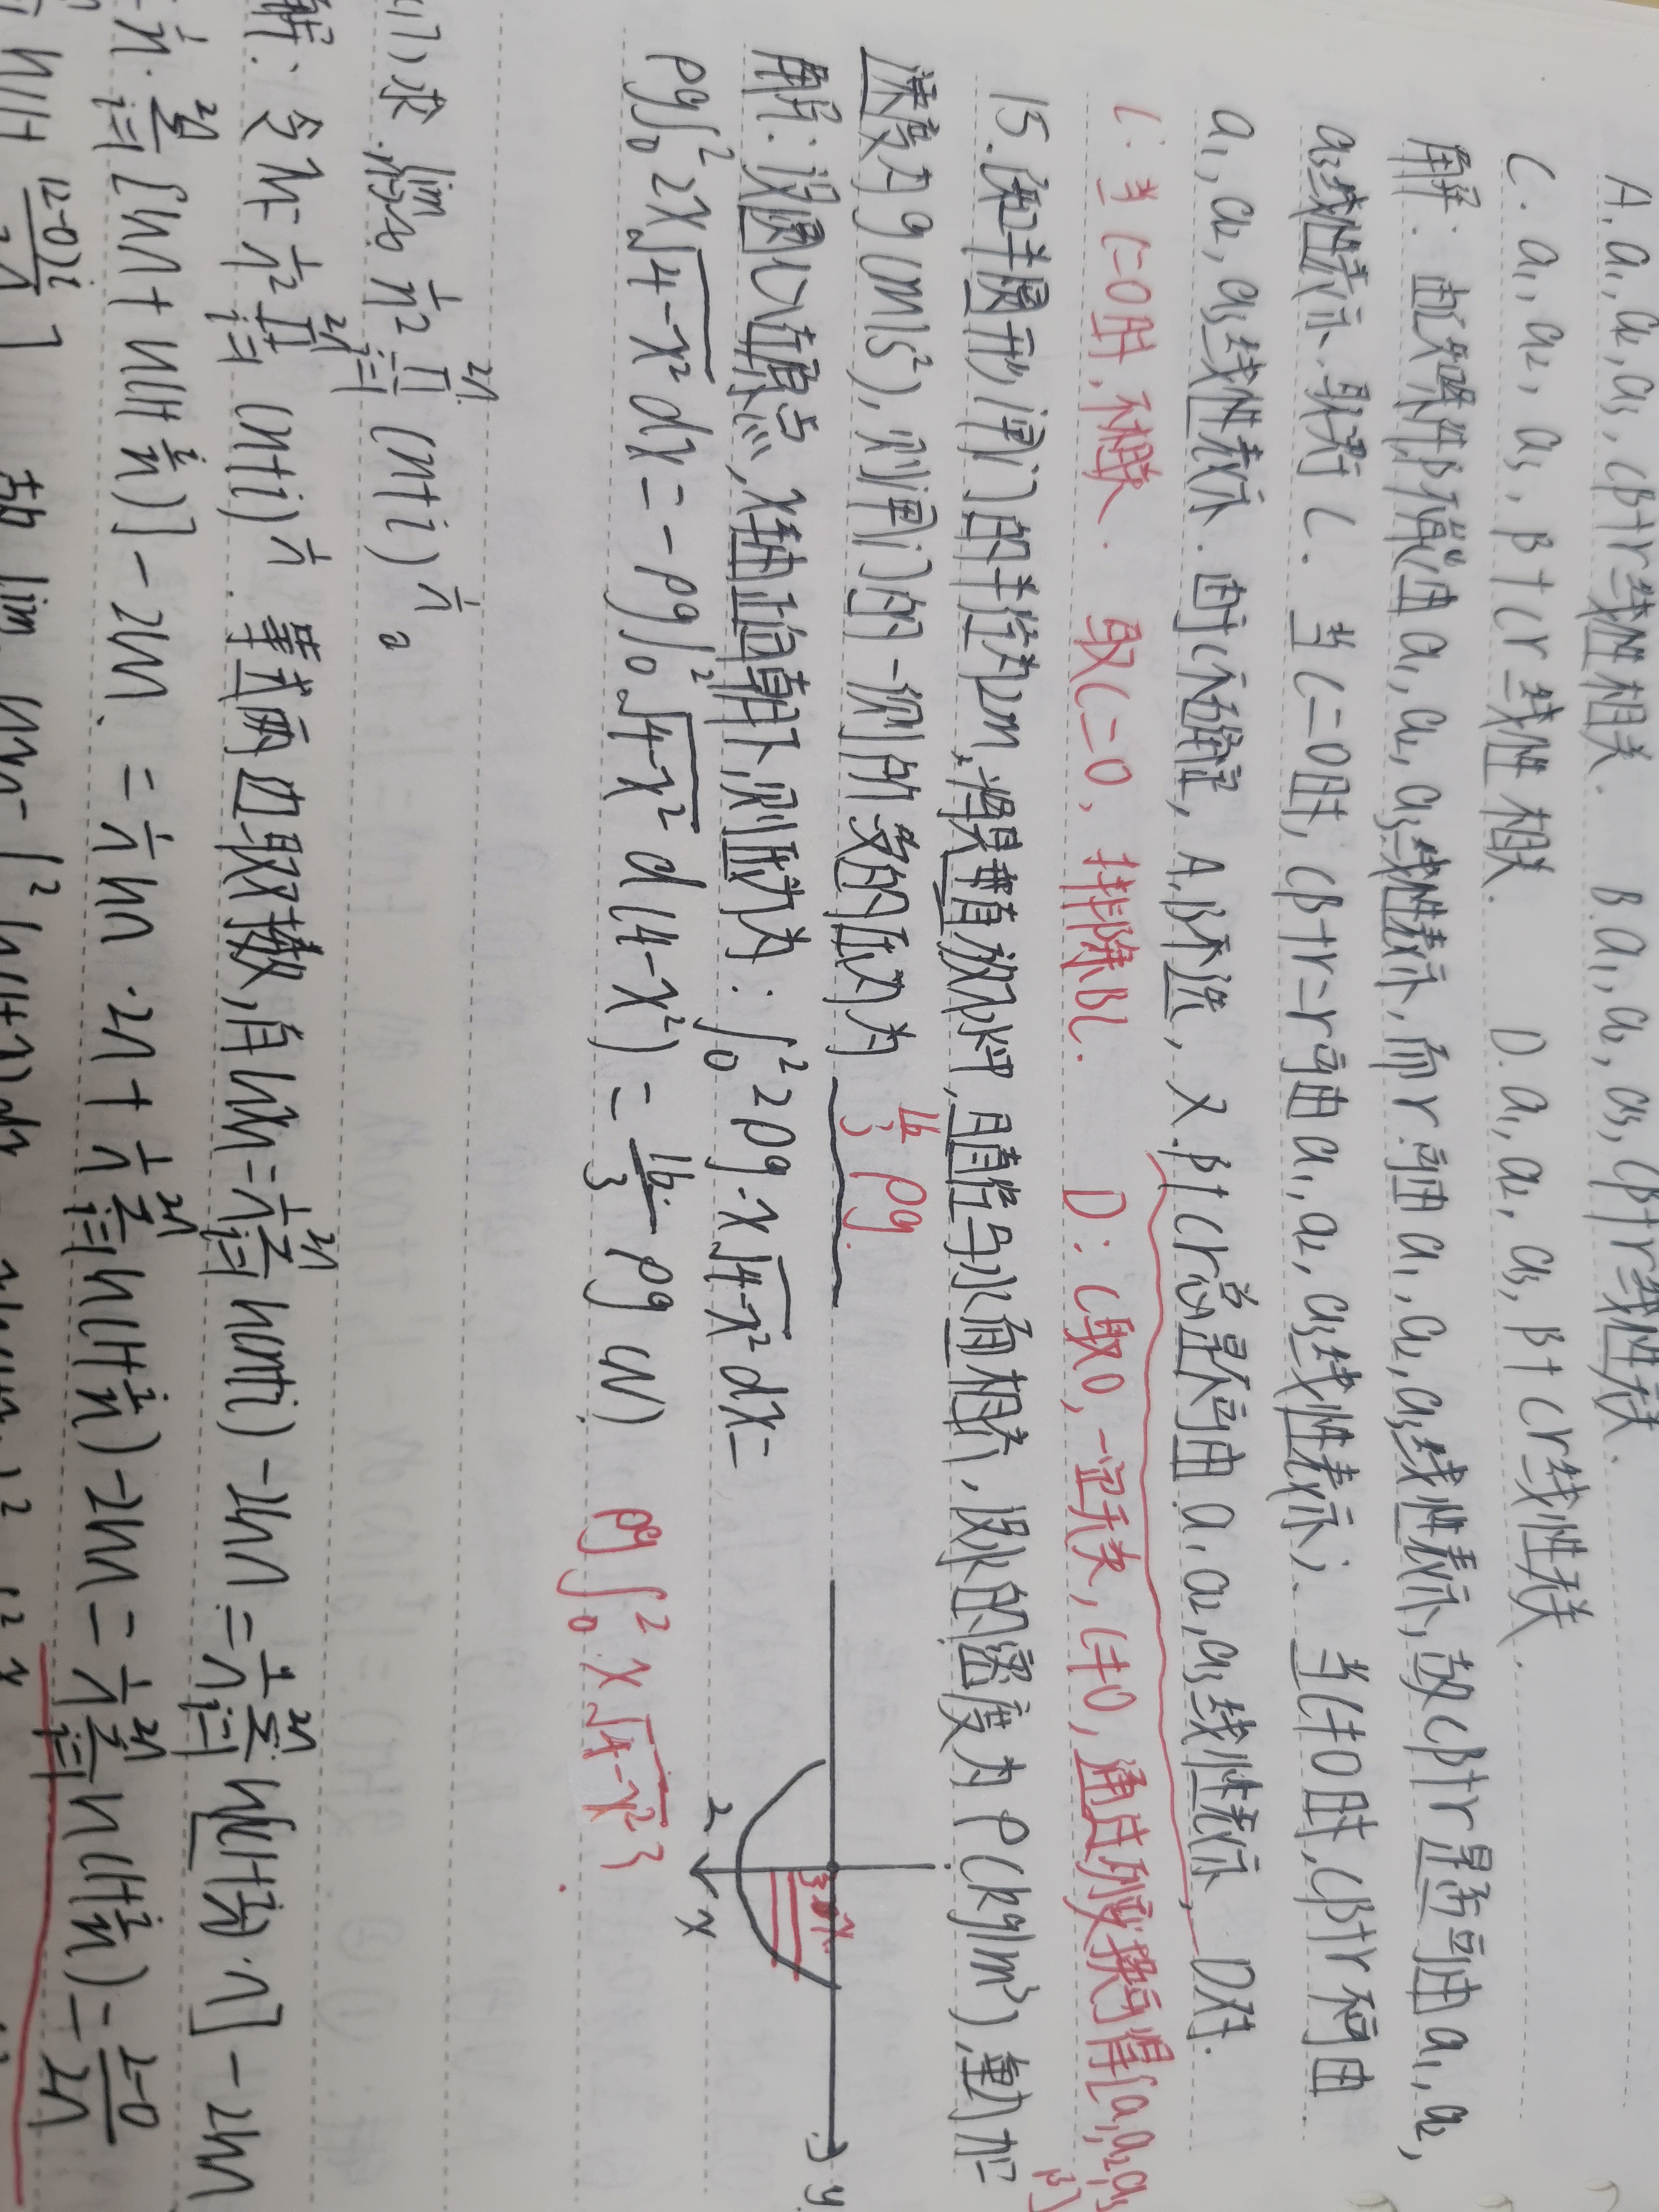 A. a₁, a₂, a₃, cβ+r线性相关. B a₁, a₂, a₃, cβ+r线性无关.
C. a₁, a₂, a₃, β+cr线性相关. D. a₁, a₂, a₃, β+cr线性无关.
解: 由已知条件, β不可以由a₁, a₂, a₃线性表示, 而r可由a₁, a₂, a₃线性表示, 故cβ+r是否可由a₁, a₂,
a₃线性表示, 取决于c. 当c=0时, cβ+r=r可由a₁, a₂, a₃线性表示; 当c≠0时, cβ+r不可由
a₁, a₂, a₃线性表示. 由于c不确定, A, B不选, 又β+cr总是不可由a₁, a₂, a₃线性表示, D对.
c: 当c=0时, 不相关. 取c=0, 排除BC. D: c取0, 一定无关, c≠0, 通过列变换可得[a₁,a₂,a₃
β]
15. 决y半圆形闸门的半径为2m, 将其垂直放入水中, 且直径与水面相齐, 设水的密度为ρ(kg/m³), 重力加
速度为g(m/s²), 则闸门的一侧所受的压力为 16/3 ρg.
解: 设圆心为原点, x轴正向朝下, 则压力为: ∫₀² 2ρg·x√(4-x²) dx=
ρg∫₀² 2x√(4-x²) dx = -ρg∫₀² √(4-x²) d(4-x²) = 16/3 ρg (N) ρg∫₀² x√(4-x²)
2
x
y
(17) 求 lim n→∞ 1/n² ∏ᵢ₌₁²ⁿ (n+i)^(1/n)。
解: 令xₙ= 1/n² ∏ᵢ₌₁²ⁿ (n+i)^(1/n). 等式两边取对数, 有lnxₙ = 1/n ∑ᵢ₌₁²ⁿ ln(n+i) - 2lnn = 1/n ∑ᵢ₌₁²ⁿ ln[(1+i/n)·n] - 2lnn
= 1/n · ∑ᵢ₌₁²ⁿ [lnn + ln(1+i/n)] - 2lnn. = 1/n lnn · 2n + 1/n ∑ᵢ₌₁²ⁿ ln(1+i/n) - 2lnn = 1/n ∑ᵢ₌₁²ⁿ ln(1+i/n) = (2-0)/2n
ln[1+ (2-0)i/2n] 故 lim lnxₙ = ∫² ln(1+x)dx